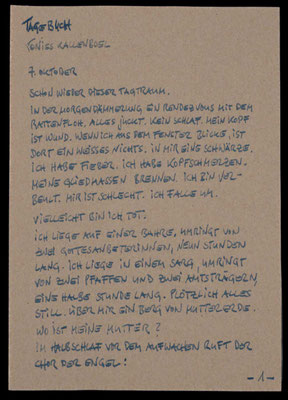 TAGEBUCH
TENIES KALLENBOEL
7. OKTOBER
SCHON WIEDER DIESER TAGTRAUM.
IN DER MORGENDÄMMERUNG EIN RENDEZVOUS MIT DEM
RATTENFLOH. ALLES JUCKT. KEIN SCHLAF. MEIN KOPF
IST WUND. WENN ICH AUS DEM FENSTER BLICKE, IST
DORT EIN WEISSES NICHTS. IN MIR EINE SCHWÄRZE.
ICH HABE FIEBER. ICH HABE KOPFSCHMERZEN.
MEINE GLIEDMASSEN BRENNEN. ICH BIN VER-
BEULT. MIR IST SCHLECHT. ICH FALLE UM.
VIELLEICHT BIN ICH TOT.
ICH LIEGE AUF EINER BAHRE, UMRINGT VON
ZWEI GOTTESANBETERINNEN, NEUN STUNDEN
LANG. ICH LIEGE IN EINEM SARG, UMRINGT
VON ZWEI PFAFFEN UND ZWEI AMTSTRÄGERN,
EINE HALBE STUNDE LANG. PLÖTZLICH ALLES
STILL. ÜBER MIR EIN BERG VON MUTTERERDE.
WO IST MEINE MUTTER?
IM HALBSCHLAF VOR DEM AUFWACHEN RUFT DER
CHOR DER ENGEL:
- 1 -